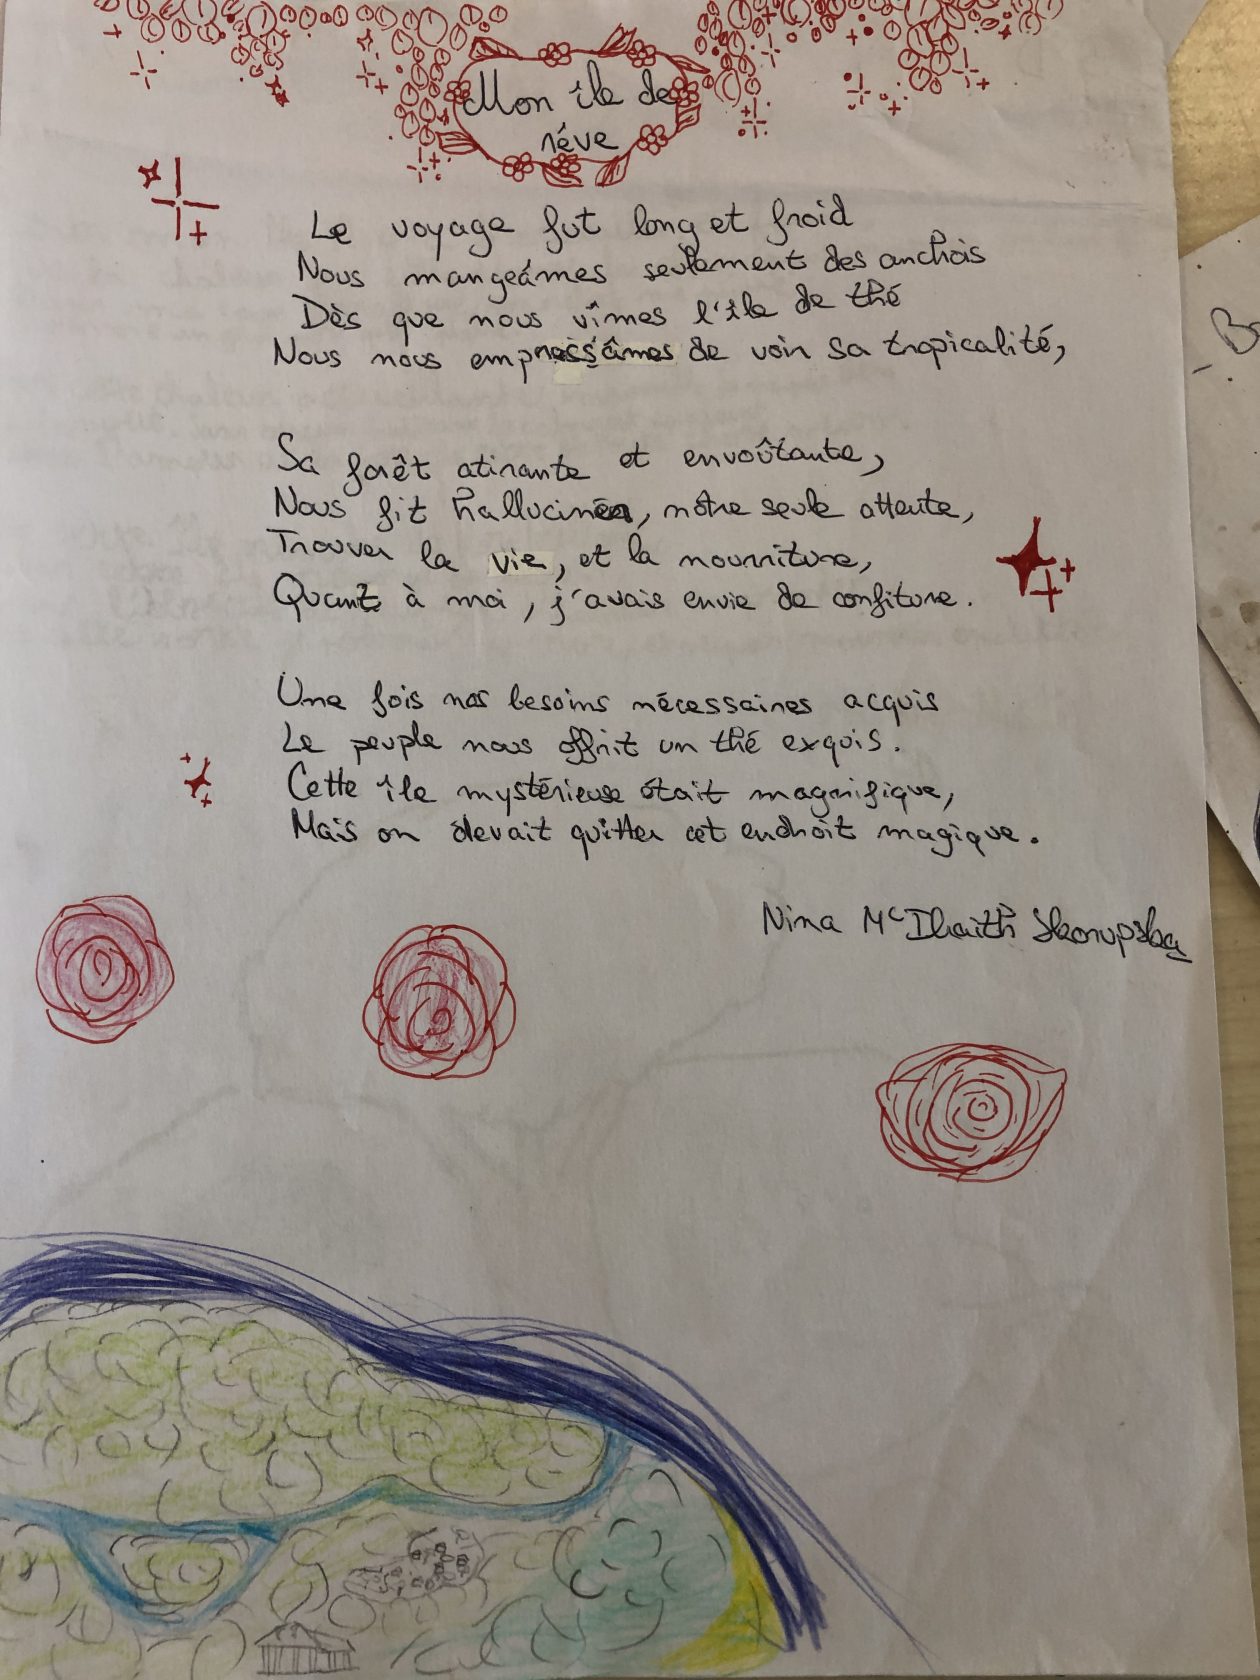 Mon île de
rêve
Le voyage fut long et froid
Nous mangeâmes seulement des anchois
Dès que nous vîmes l'île de thé
Nous nous empressâmes de voir sa tropicalité,
Sa forêt atirante et envoûtante,
Nous fit halluciner, nôtre seule attente,
Trouver la vie, et la nourriture,
Quant à moi, j'avais envie de confiture.
Une fois nos besoins nécessaires acquis
Le peuple nous offrit un thé exquis.
Cette île mystérieuse était magnifique,
Mais on devait quitter cet endroit magique.
Nina Mc Ilraith Skorupska